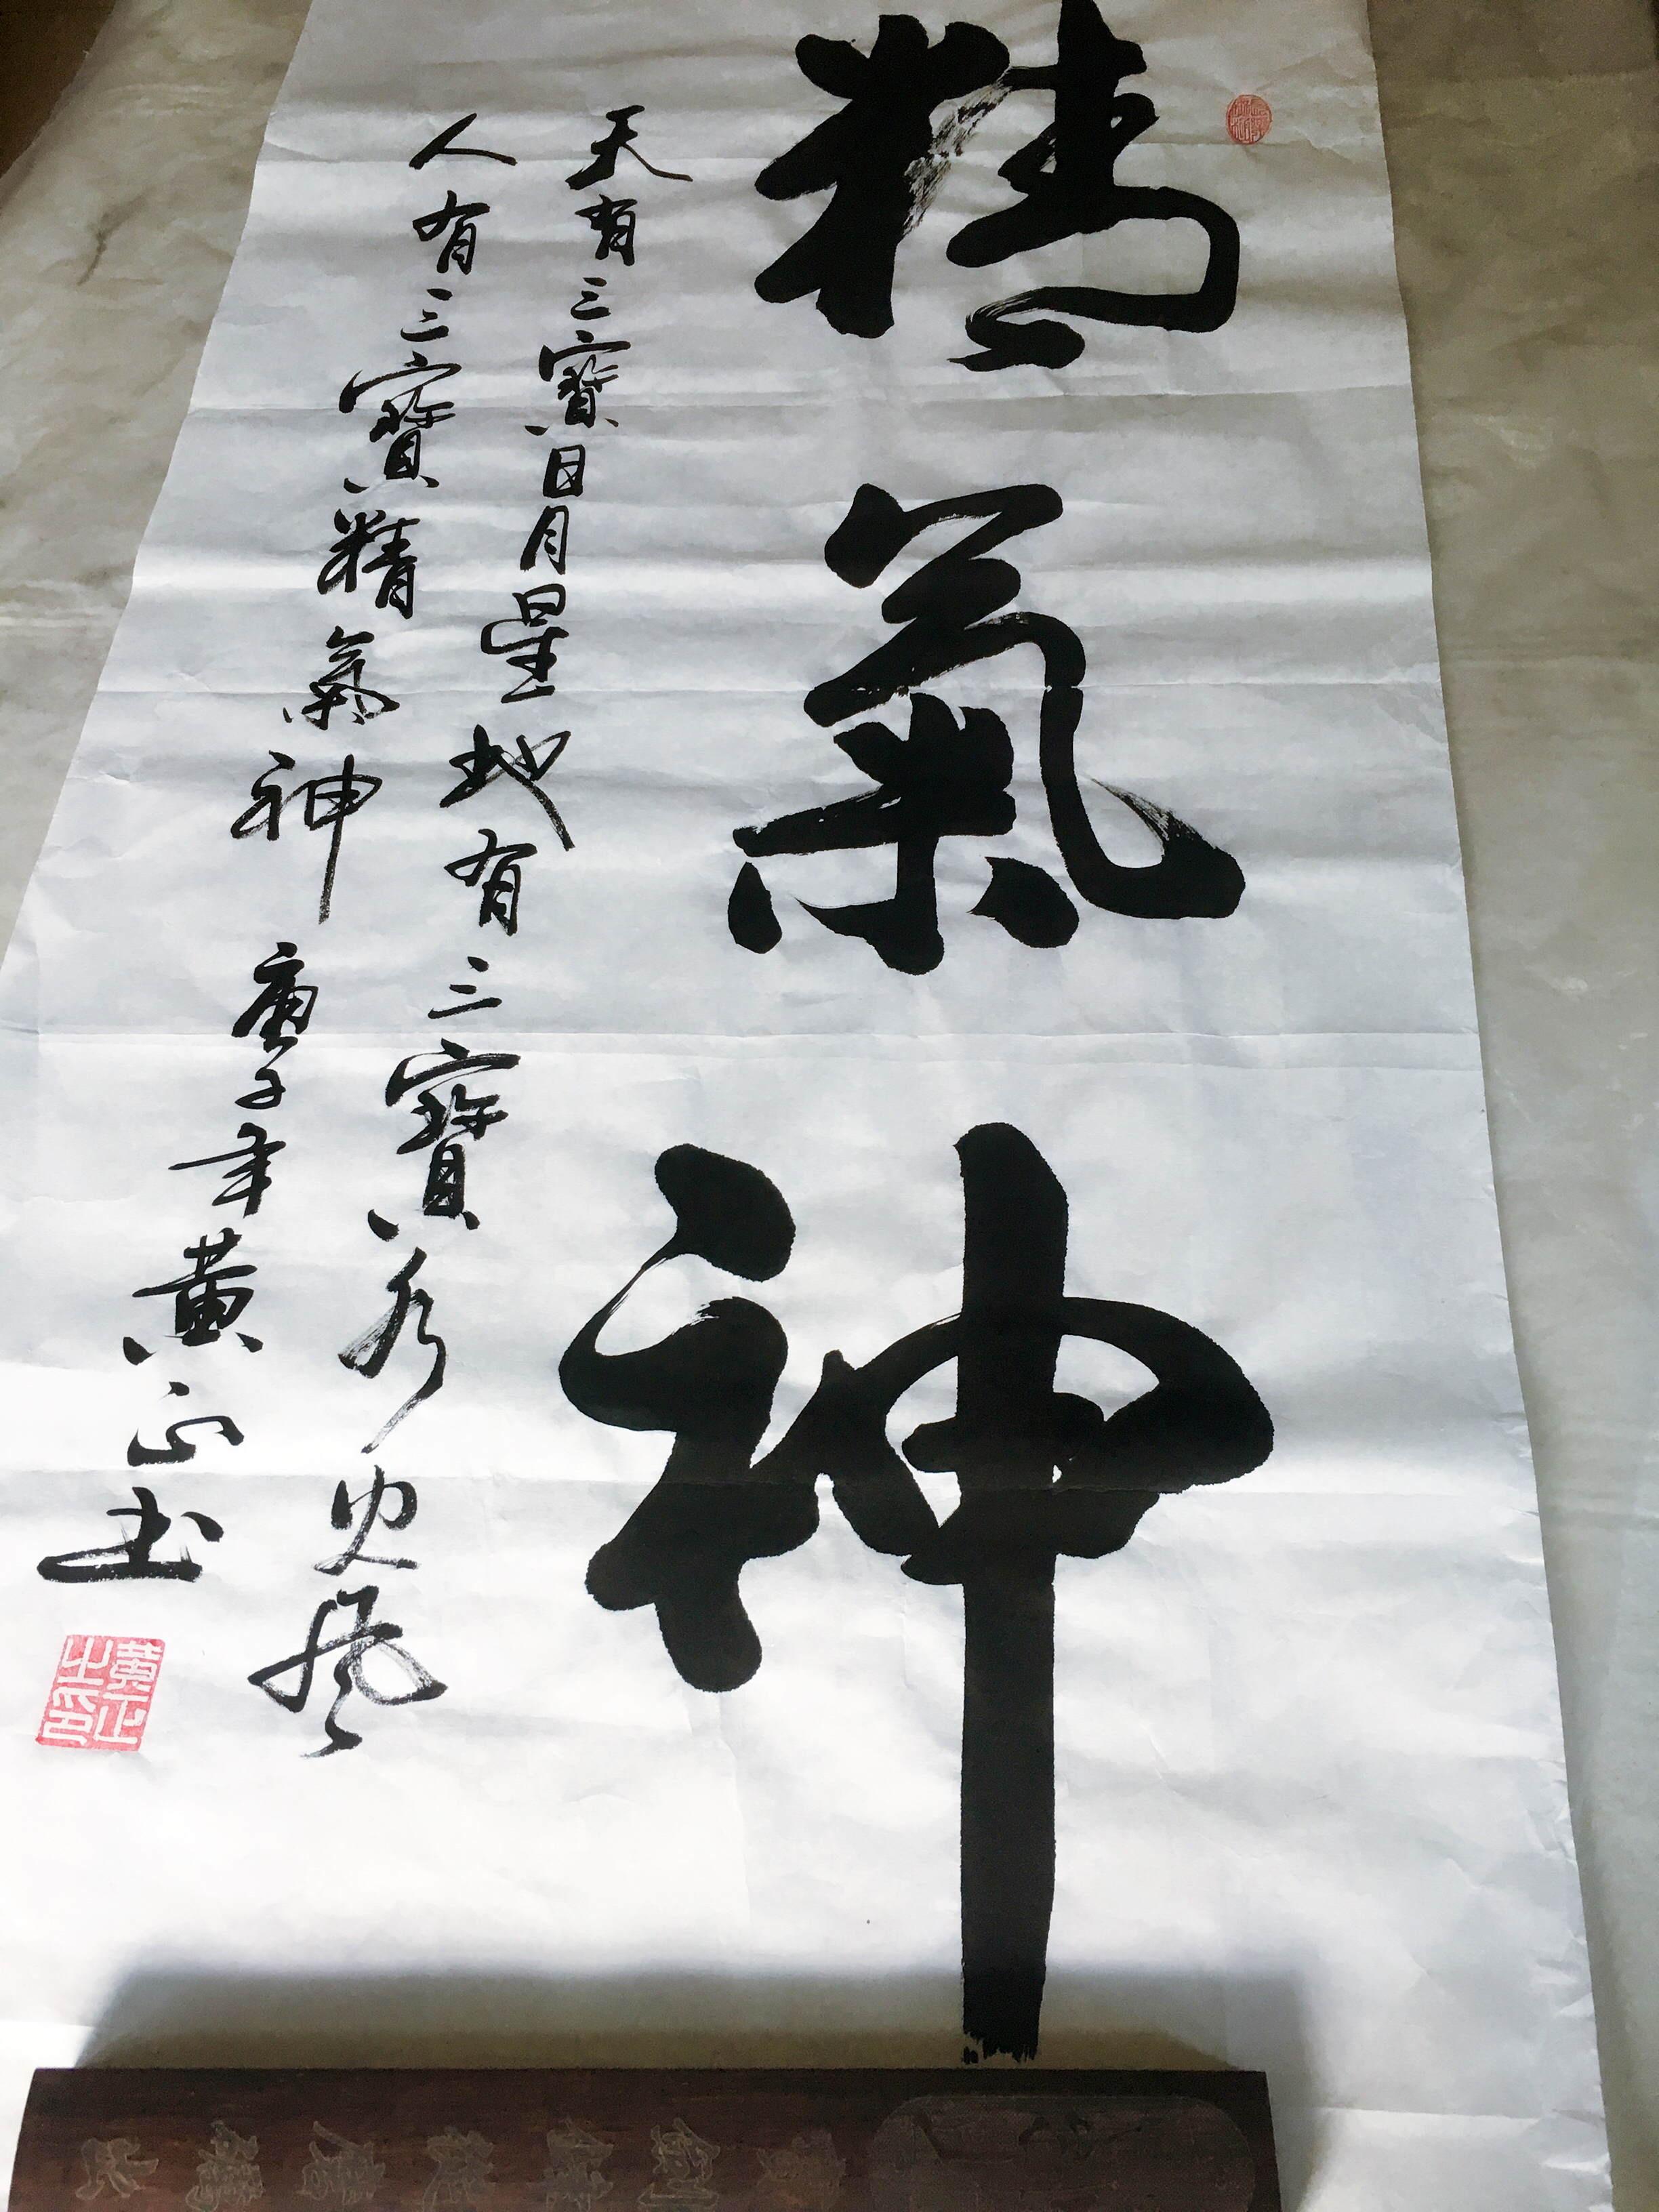 精氣神
天有三寶日月星地有三寶水火風
人有三寶精氣神 庚子年黃正書
黃正之印